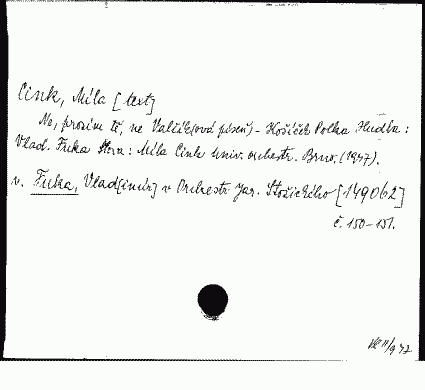 Cink, Míla [text]
Ne, prosím tě, ne Valčík(ová píseň) - Košíček Polka Hudba:
Vlad. Fuka Slova: Míla Cink Univ. orchestr. Brno, (1947).
v. Fuka, Vlad[imír] v Orchestr Jar. Stožického [149062]
č. 150-151.